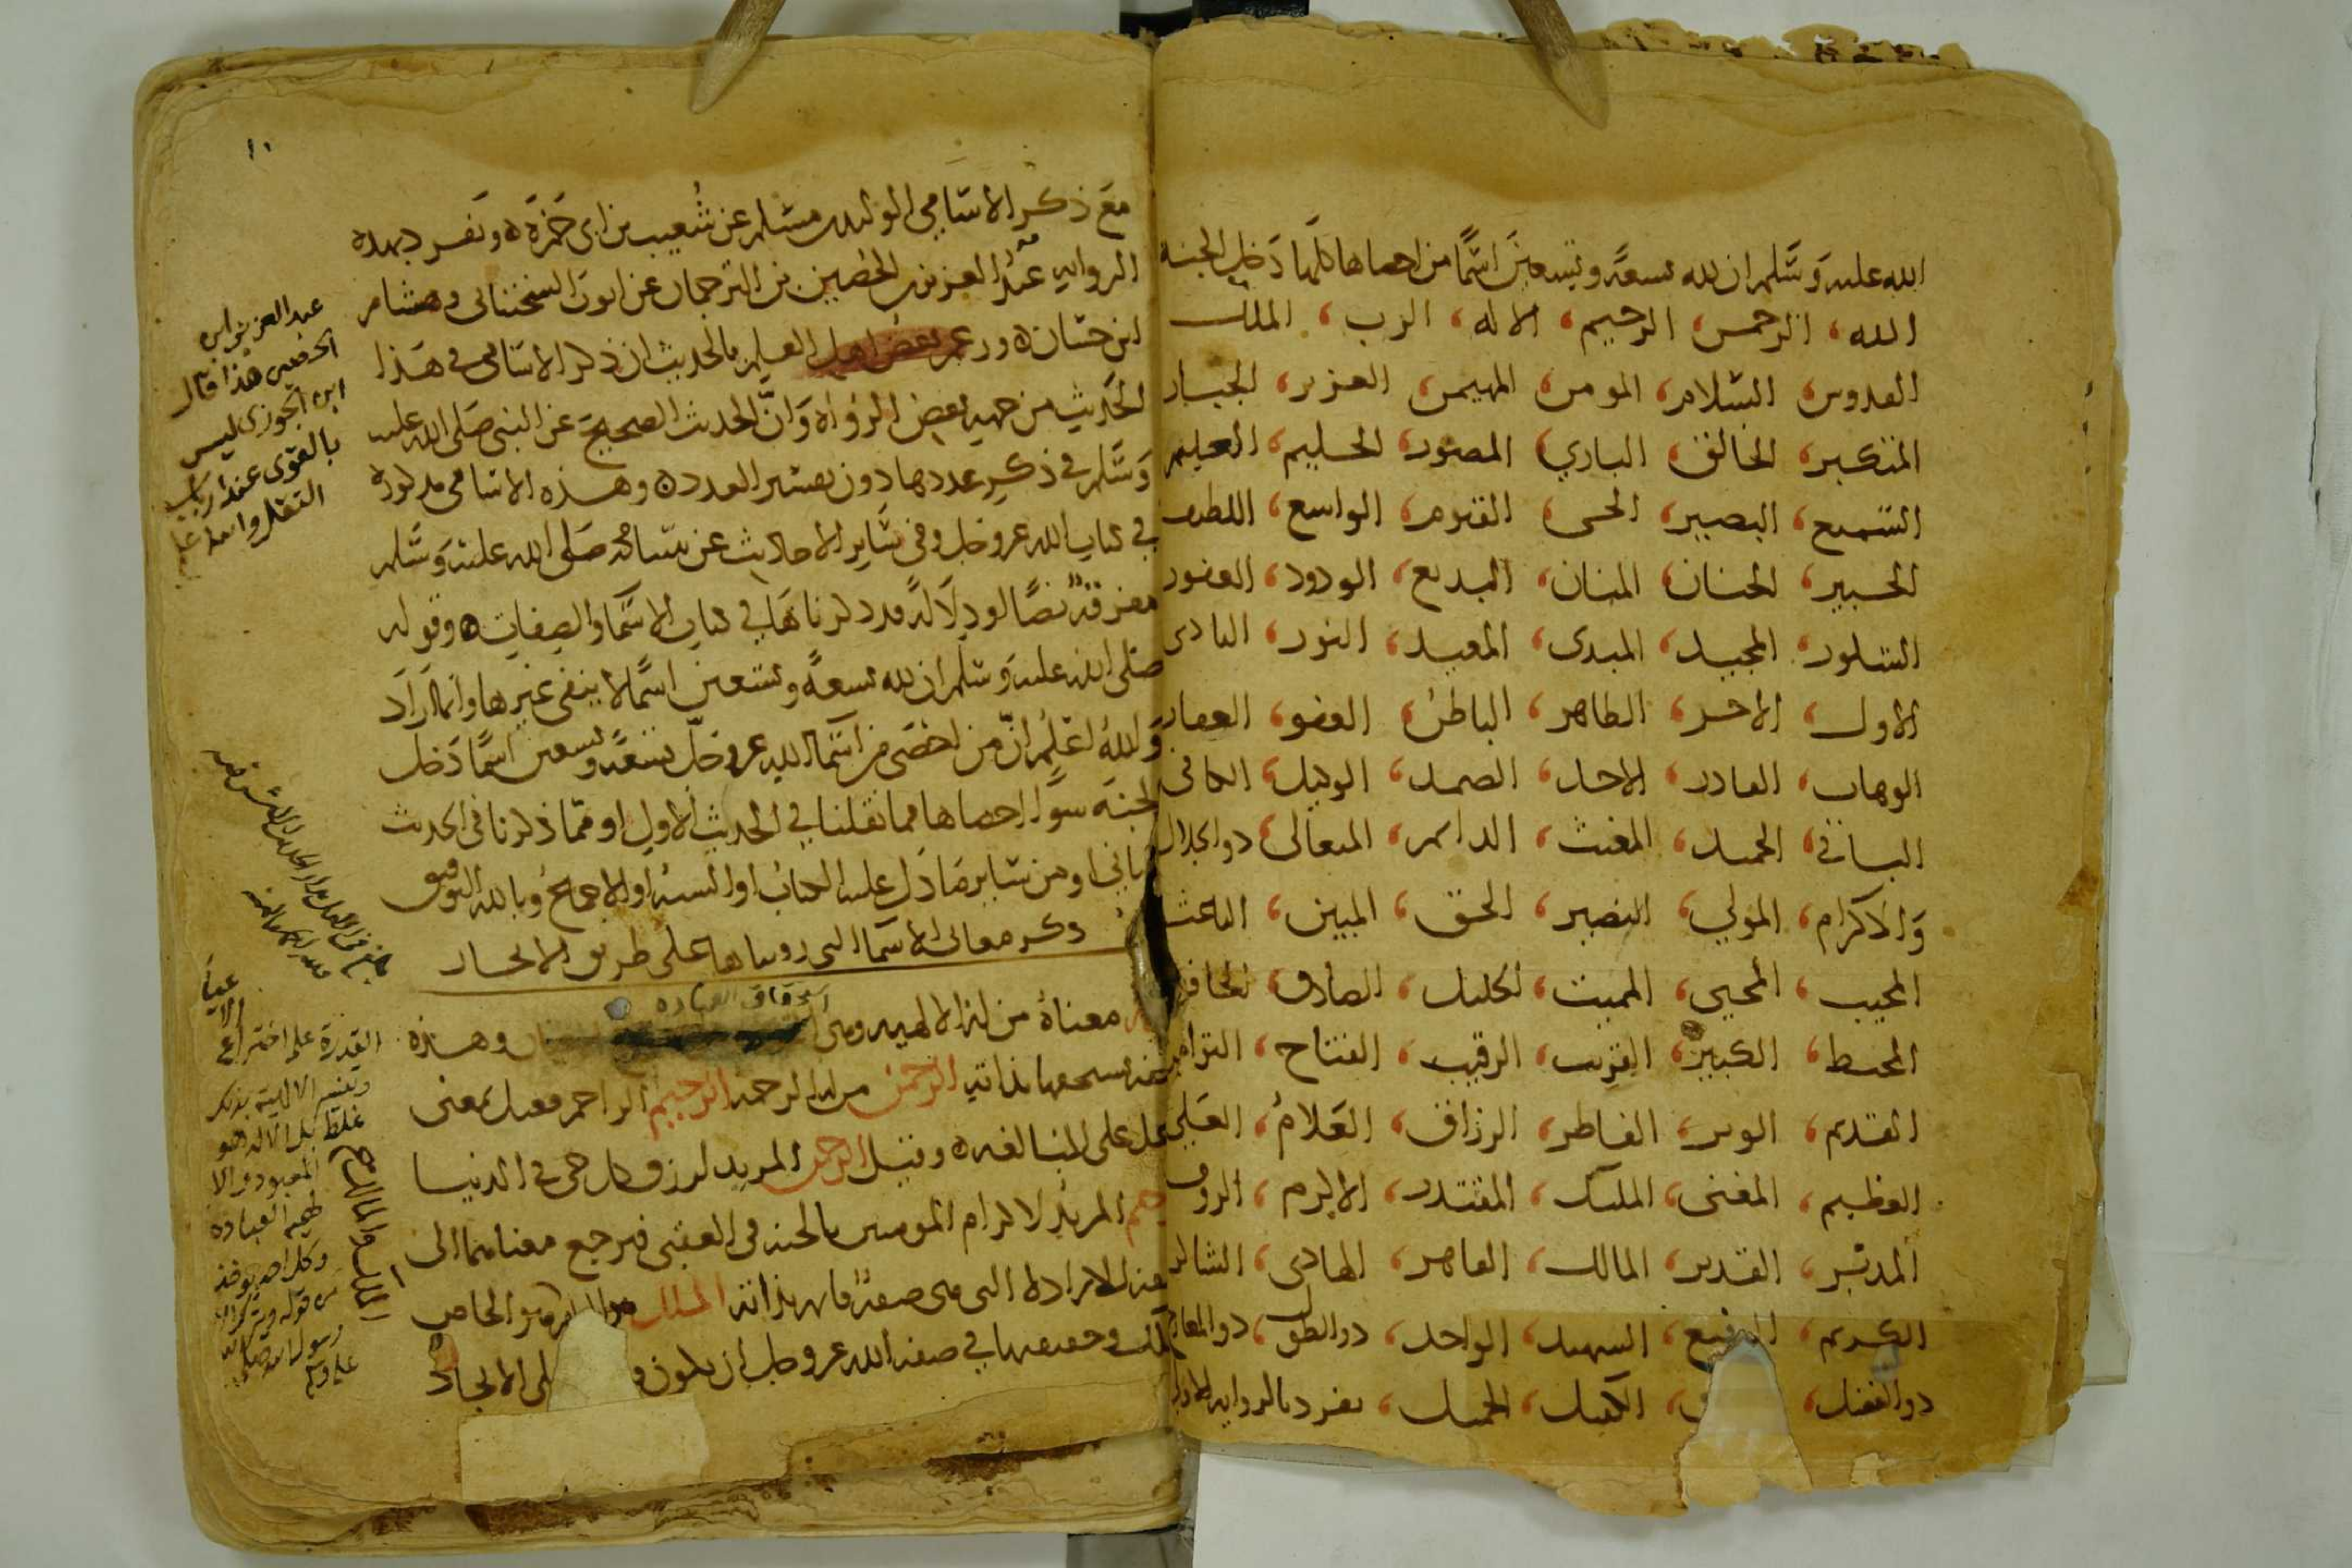 الله عليه وسلم ان لله تسعة وتسعين اسما من احصاها كلها دخل الجنة
الله، الرحمن، الرحيم، الاله، الرب، الملك
القدوس، السلام، المومن، المهيمن، العزيز، الجبار
المتكبر، الخالق، الباري، المصور، الحليم، العليم
السميع، البصير، الحي، القيوم، الواسع، اللطيف
الخبير، الحنان، المنان، البديع، الودود، الغفور
الشكور، المجيد، المبدى، المعيد، النور، البادى
الاول، الاخر، الظاهر، الباطن، العفو، الغفار
الوهاب، القادر، الاحد، الصمد، الوكيل، الكافى
الباقي، الحميد، المغيث، الدايم، المتعالى، ذو الجلال
والاكرام، المولي، النصير، الحق، المبين، الباعث
المجيب، المحيي، المميت، الجليل، الصادق، الحافظ
المحيط، الكبير، القريب، الرقيب، الفتاح، التواب
القديم، الوتر، الفاطر، الرزاق، العلام، العلي
العظيم، المغنى، المليك، المقتدر، الاكرم، الروف
المدبر، القدير، المالك، القاهر، الهادى، الشاكر
الكريم، الرفيع، الشهيد، الواحد، ذو الطول، ذو المعارج
ذو الفضل، الكفيل، الجميل، تفرد بالرواية الاولى
١٠
مع ذكر الاسامي الوليد بن مسلم عن شعيب بن ابى حمزة ٥ وتفرد بهذه
الرواية عبد العزيز بن الحصين بن الترجمان عن ايوب السختيانى وهشام
ابن حسان ٥ وزعم بعض اهل العلم بالحديث ان ذكر الاسامى فى هذا
الحديث من جهة بعض الرواة وان الحديث الصحيح عن النبي صلى الله عليه
وسلم في ذكر عددها دون تفسير العدد ٥ وهذه الاسامى مذكورة
في كتاب الله عز وجل وفى ساير الاحاديث عن نبينا محمد صلى الله عليه وسلم
مفرقة نصا او دلالة قد ذكرناها في كتاب الاسما والصفات ٥ وقوله
صلى الله عليه وسلم ان لله تسعة وتسعين اسما لا ينفى غيرها وانما اراد
والله اعلم ان من احصى من اسما الله عز وجل تسعة وتسعين اسما دخل
الجنة سوا احصاها مما نقلنا في الحديث الاول او مما ذكرنا فى الحديث
الثاني او من ساير ما دل عليه الكتاب او السنة او الاجماع وبالله التوفيق
ذكر معانى الاسما التى رويناها على طريق الايجاز
استحقاق العبادة
معناه من له الالهية وهى وهذه
صفة يستحقها بذاته الرحمن من له الرحمة الرحيم الراحم فعيل بمعنى
فاعل على المبالغة ٥ وقيل الرحمن المريد لرزق كل حى فى الدنيا
الرحيم المريد لاكرام المومنين بالجنة فى العقبى فيرجع معناهما الى
صفة الارادة التى هى صفة قايمة بذاته الملك هو الخاص
الملك وحقيقتها في صفة الله عز وجل ان يكون على الايجاد
عبد العزيز ابن
الحصين هذا قال
ابن الجوزى ليس
بالقوى عند ارباب
النقل والله اعلم
القدرة على اختراع
الاعيان
وتفسير الالهية بذلك
غلط بل الاله هو
المعبود والا
لهية العبادة
وكل احد يوخذ
من قوله ويترك الا
رسول الله صلى الله
عليه وسلم